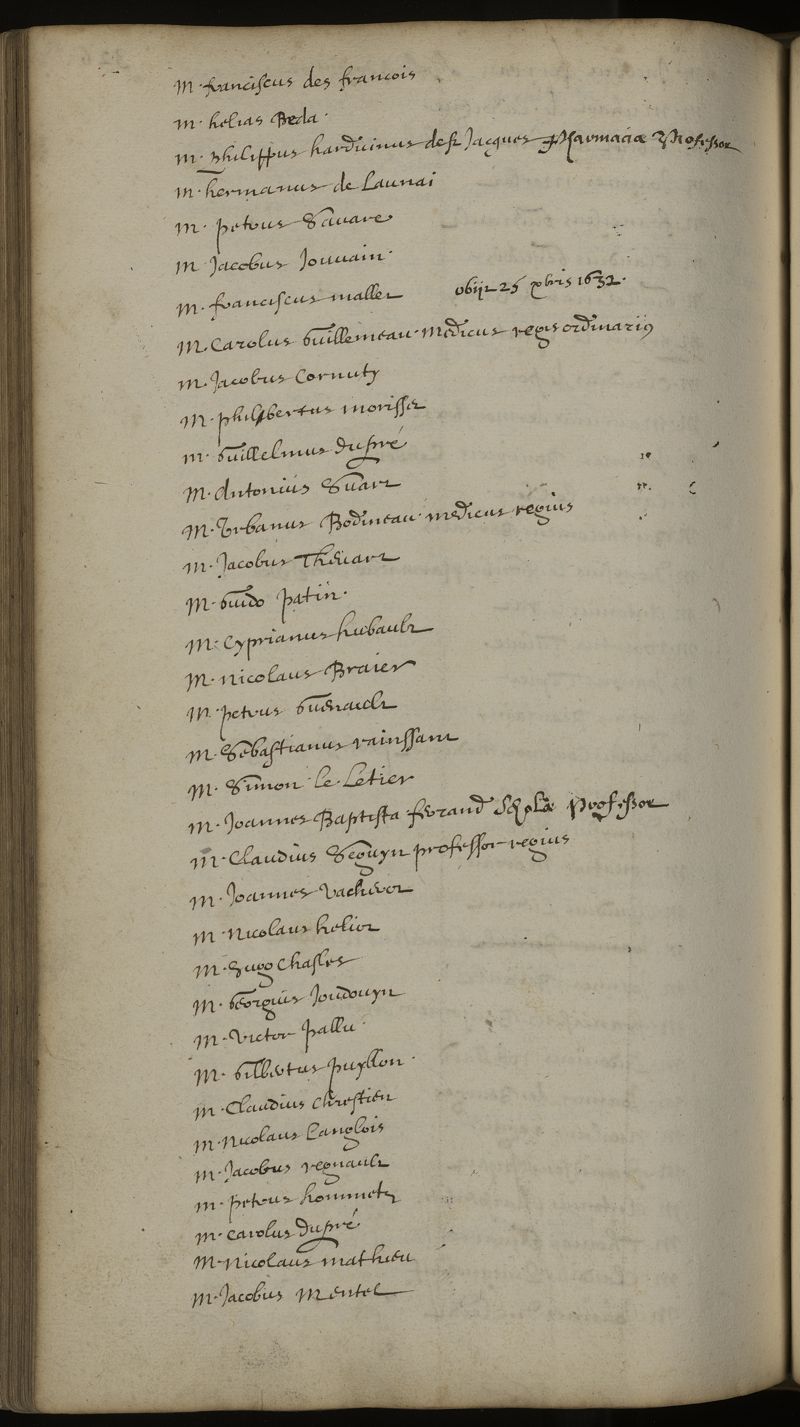 M. franciscus des francois
M. helias Beda.
M. Philippus harduinus de St Jacques Pharmaciæ Professor
M. hermanus de Launai
M. petrus Sauare
M. Jacobus Jouuain.
M. franciscus mallet obijt 25 xbris 1632.
M. Carolus Guillemeau medicus regis ordinarius
M. Jacobus Cornuty
M. philibertus morisset
M. Guillelmus dupré
M. Antonius Suart
M. Vrbanus Bodineau medicus regius
M. Jacobus Theuart
M. Guido patin.
M. Cyprianus hubault
M. Nicolaus Braier
M. petrus Guenault
M. Sebastianus rainssant
M. Simon le Letier
M. Joannes Baptista ferrand Scholæ Professor
M. Claudius Seguyn professor regius
M. Joannes Vacherot
M. Nicolaus heliot
M. Hugo Chasles
M. Georgius Joudouyn
M. Victor pallu.
M. Gilbertus puyllon.
M. Claudius chrestien
M. Nicolaus Langlois
M. Jacobus regnault
M. petrus hommetz
M. carolus dupré
M. Nicolaus mathieu
M. Jacobus Mentel